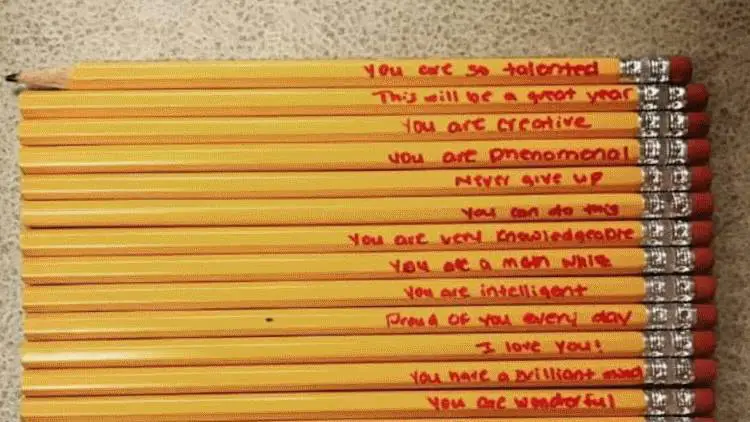 You are so talented
This will be a great year
You are creative
you are phenomonal
Never give up
You can do this
You are very knowledgeable
You are a math whiz
You are intelligent
Proud of you every day
I love you!
You have a brilliant mind
You are wonderful